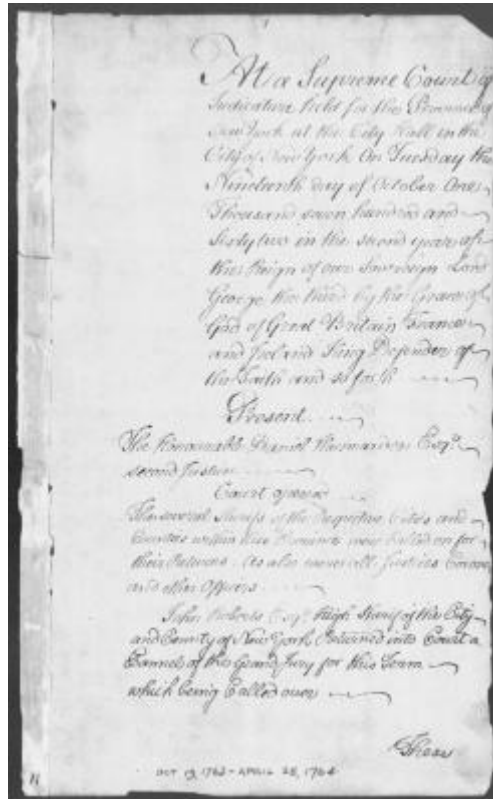 At a Supreme Court of
Judicature held for the Province of
New York at the City Hall in the
City of New York On Tuesday the
Nineteenth day of October One
Thousand seven hundred and
Sixty two in the second year of
the Reign of our Sovereign Lord
George the third by the Grace of
God of Great Britain France
and Ireland King Defender of
the Faith and so forth
Present
The Honourable Daniel Horsmanden Esqr.
second Justice
Court opened
The several Sheriffs of the respective Cities and
Counties within this Province were Called on for
their Returns As also were all Justices Coroners
and other Officers
John Roberts Esqr. High Sheriff of the City
and County of New York Returned into Court a
Pannel of the Grand Jury for this Term
which being Called over
OCT 19, 1762 - APRIL 28, 1764